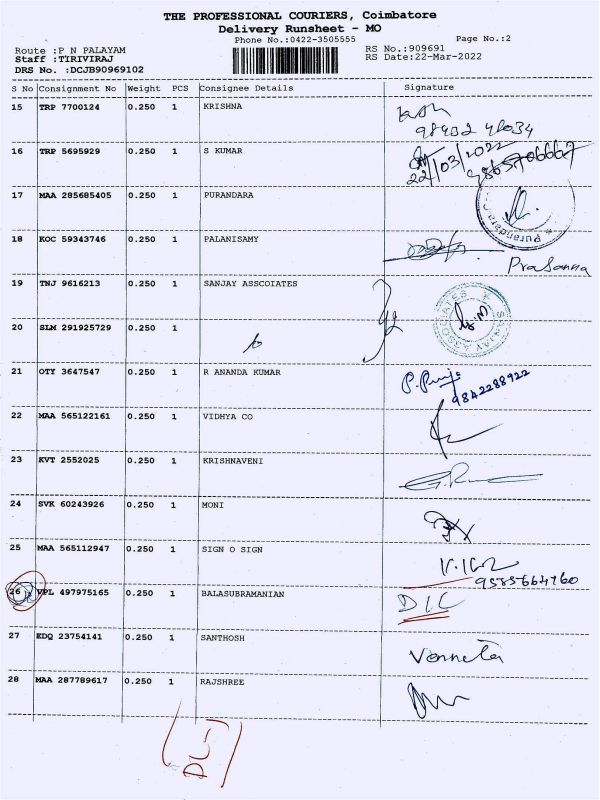 THE PROFESSIONAL COURIERS, Coimbatore
Delivery Runsheet - MO
Phone No.:0422-3505555
Page No.:2
Route :P N PALAYAM
RS No.:909691
Staff :TIRIVIRAJ
RS Date:22-Mar-2022
DRS No. :DCJB90969102
S No Consignment No Weight PCS Consignee Details Signature
15 TRP 7700124 0.250 1 KRISHNA
16 TRP 5695929 0.250 1 S KUMAR
22/03/2022
17 MAA 285685405 0.250 1 PURANDARA
Purandara
18 KOC 59343746 0.250 1 PALANISAMY
Prasanna
19 TNJ 9616213 0.250 1 SANJAY ASSCOIATES
SANJAY ASSOCIATES
20 SLM 291925729 0.250 1
21 OTY 3647547 0.250 1 R ANANDA KUMAR
9842288922
22 MAA 565122161 0.250 1 VIDHYA CO
23 KVT 2552025 0.250 1 KRISHNAVENI
24 SVK 60243926 0.250 1 MONI
25 MAA 565112947 0.250 1 SIGN O SIGN
26 VPL 497975165 0.250 1 BALASUBRAMANIAN
27 EDQ 23754141 0.250 1 SANTHOSH
28 MAA 287789617 0.250 1 RAJSHREE